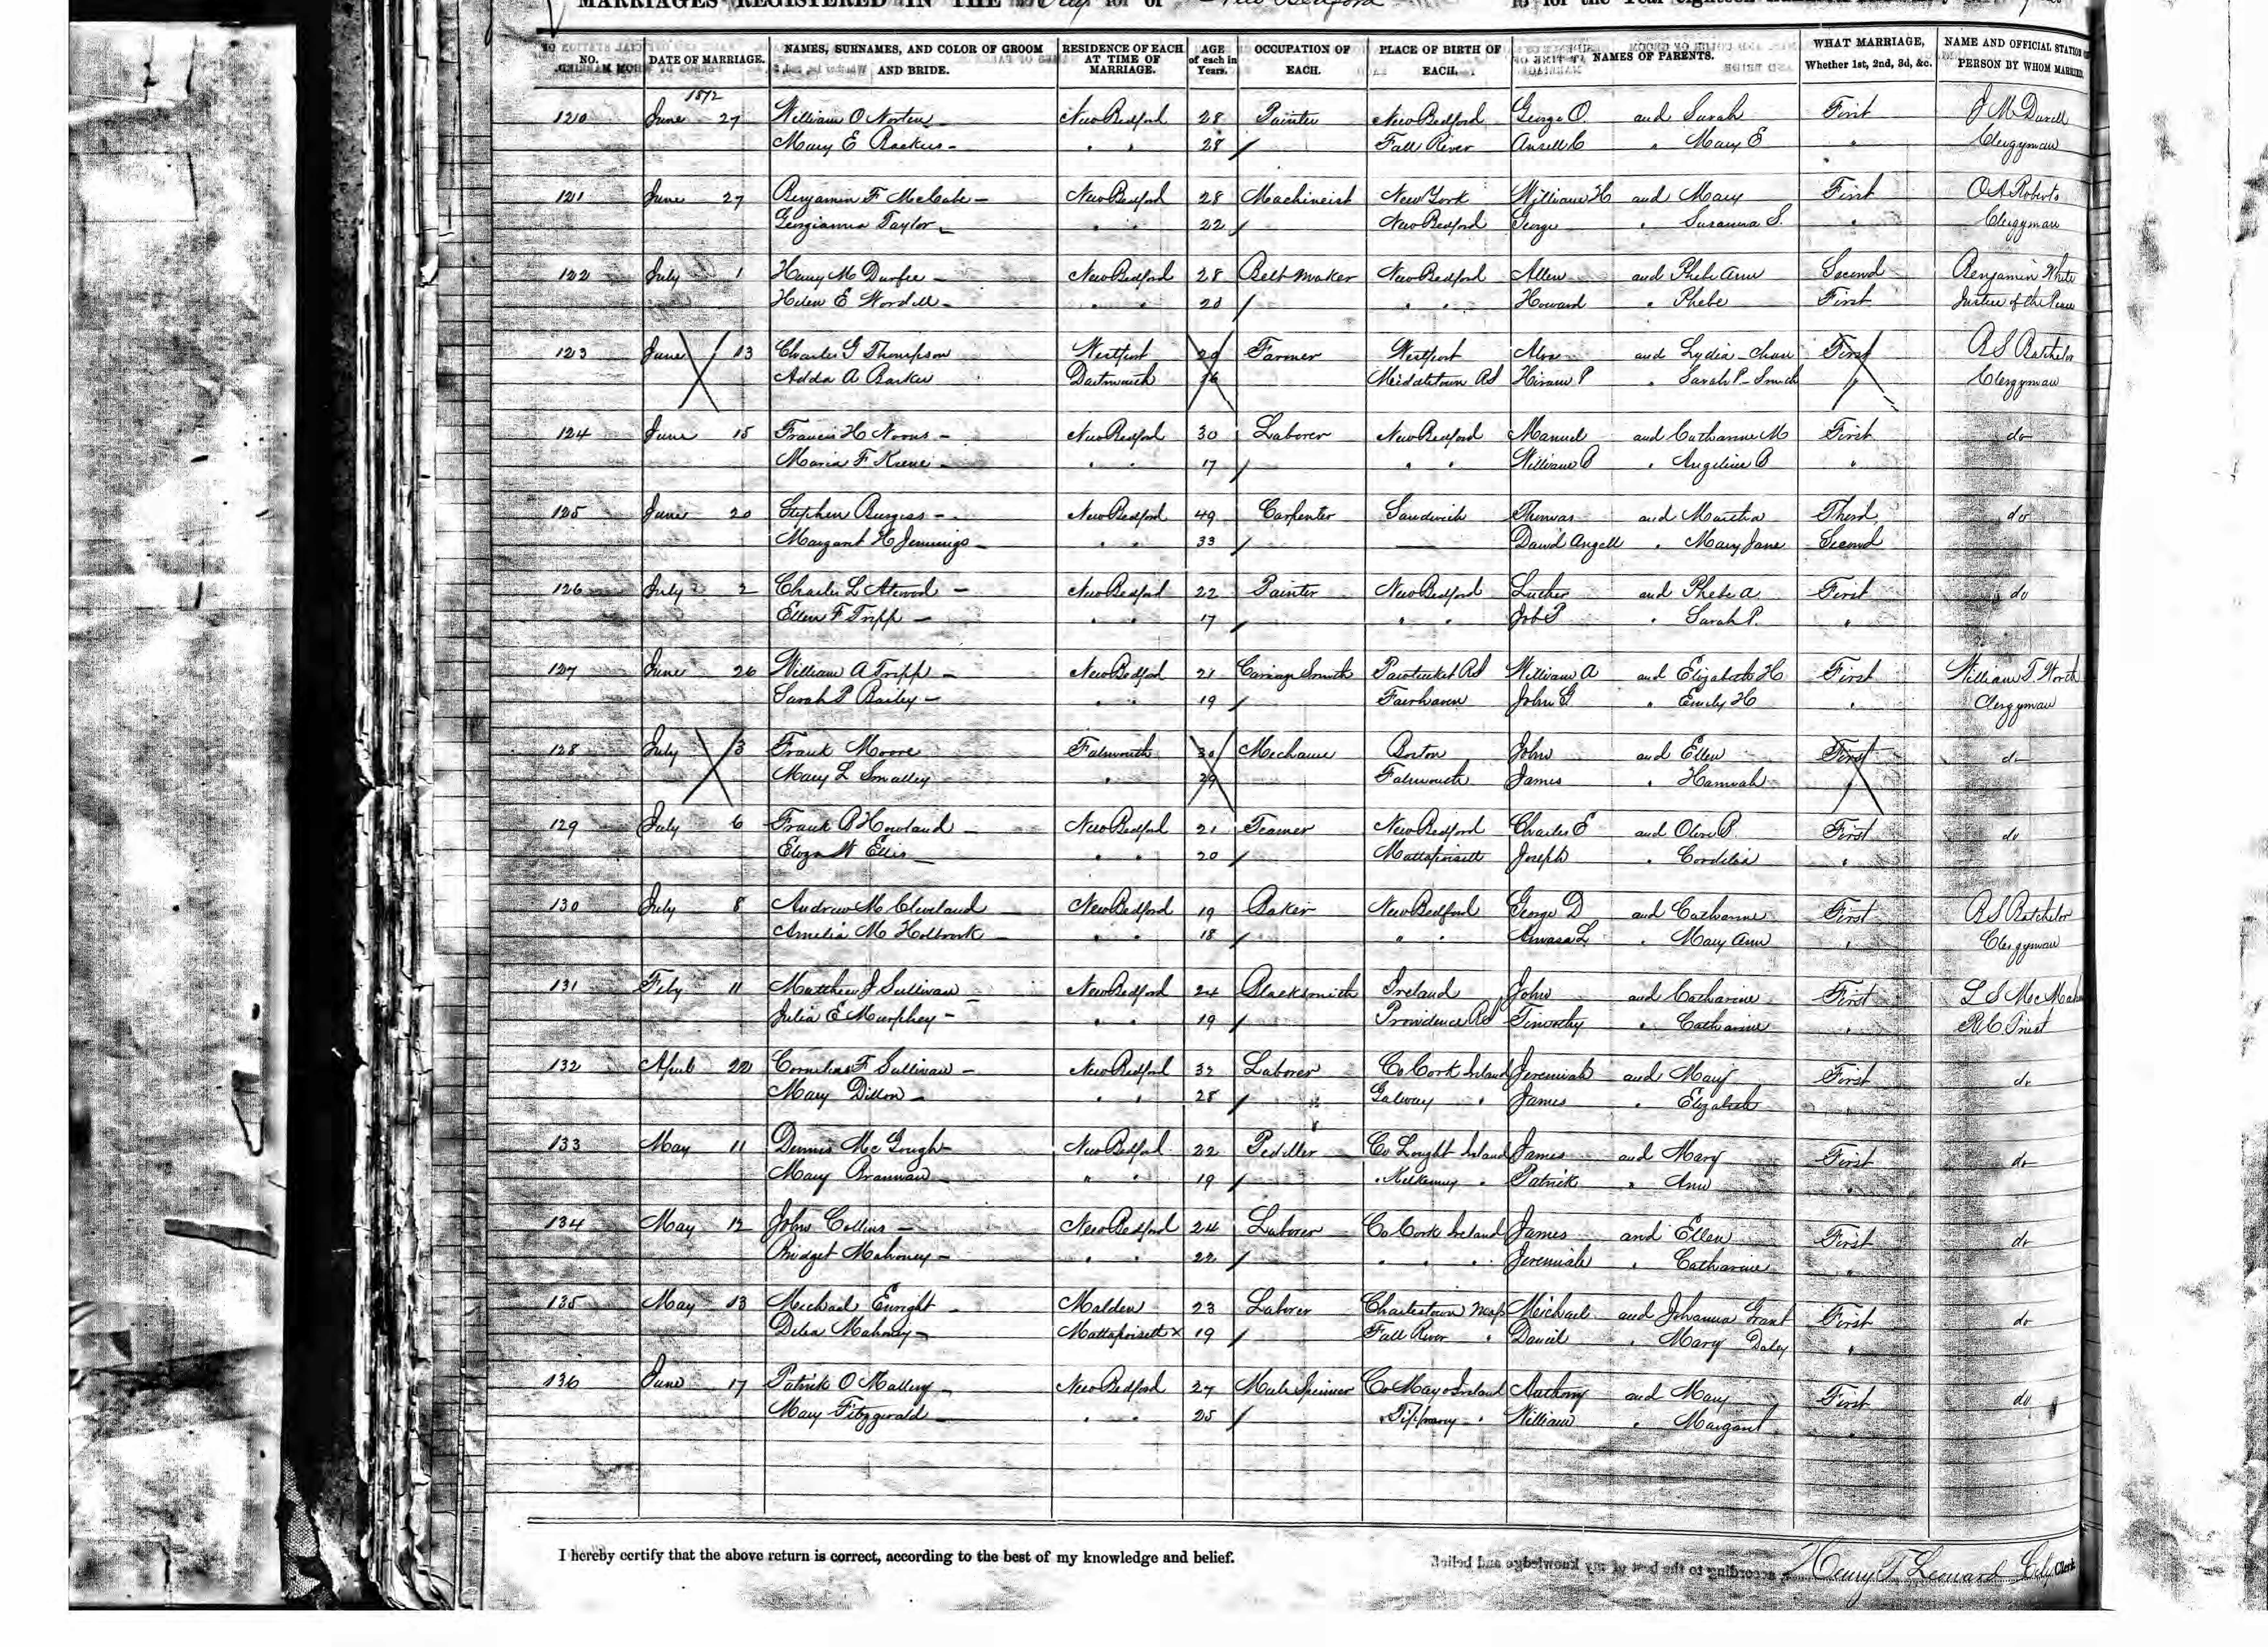 MARRIAGES REGISTERED IN THE City of New Bedford for the Year eighteen hundred and
NO. DATE OF MARRIAGE. NAMES, SURNAMES, AND COLOR OF GROOM AND BRIDE. RESIDENCE OF EACH AT TIME OF MARRIAGE. AGE of each in Years. OCCUPATION OF EACH. PLACE OF BIRTH OF EACH. NAMES OF PARENTS. WHAT MARRIAGE, Whether 1st, 2nd, 3d, &c. NAME AND OFFICIAL STATION OF PERSON BY WHOM MARRIED
1872
120 June 27 William O Norton New Bedford 28 Painter New Bedford George O. and Sarah First J M Durell
Mary E Backus - " " 28 / Fall River Ansell C " Mary E " Clergyman
121 June 27 Benjamin F McCabe - New Bedford 28 Machineist New York William H and Mary First O A Roberts
Georgianna Taylor - " " 22 / New Bedford George " Susanna S. " Clergyman
122 July 1 Henry M Durfee - New Bedford 28 Belt Maker New Bedford Allen and Phebe Ann Second Benjamin White
Helen E Wordell - " " 20 / " " Howard " Phebe First Justice of the Peace
123 June 13 Charles G Thompson Westport 29 Farmer Westport Alva and Lydia - Chase First R S Batchelor
Adda A Barker Dartmouth 16 Middletown RI Hiram P " Sarah P - Smith " Clergyman
124 June 15 Francis H Noons - New Bedford 30 Laborer New Bedford Manuel and Catharine M First do
Maria F Keene - " " 17 / " " William B " Angeline B "
125 June 20 Stephen Burgess - New Bedford 49 Carpenter Sandwich Thomas and Martha Third do
Margaret H Jennings - " " 33 / — David Angell " Mary Jane Second
126 July 2 Charles L Atwood - New Bedford 22 Painter New Bedford Luther and Phebe A First do
Ellen F Tripp - " " 17 / " " Job P " Sarah P. "
127 June 26 William A Tripp - New Bedford 21 Carriage Smith Pawtucket RI William A and Elizabeth H First William T. Worth
Sarah P Bailey - " " 19 / Fairhaven John G " Emily H " Clergyman
128 July 3 Frank Moore Falmouth 30 Mechanic Boston John and Ellen First do
Mary L Smalley " 29 Falmouth James " Hannah "
129 July 6 Frank B Howland - New Bedford 21 Teamer New Bedford Charles E and Olive P. First do
Eliza W Ellis - " " 20 / Mattapoisett Joseph " Cordelia "
130 July 8 Andrew M Cleveland - New Bedford 19 Baker New Bedford George D and Catharine First R S Batchelor
Amelia M Holbrook - " " 18 / " " Amasa L " Mary Ann " Clergyman
131 Feby 11 Matthew J Sullivan - New Bedford 24 Blacksmith Ireland John and Catharine First L S McMahon
Julia E Murphey - " " 19 / Providence RI Timothy " Catharine " R C Priest
132 April 22 Cornelius F Sullivan - New Bedford 32 Laborer Co Cork Ireland Jeremiah and Mary First do
Mary Dillon - " " 28 / Galway " James " Elizabeth "
133 May 11 Dennis McGough New Bedford 22 Pediller Co Lought Ireland James and Mary First do
Mary Brannan - " " 19 / " Kilkenny " Patrick " Ann "
134 May 12 John Collins - New Bedford 24 Laborer Co Cork Ireland James and Ellen First do
Bridget Mahoney - " " 22 / " " " Jeremiah " Catharine "
135 May 13 Michael Enright - Malden 23 Laborer Charlestown Mass Michael and Johanna Grant First do
Delia Mahoney - Mattapoisett x 19 / Fall River " Daniel " Mary Daley "
136 June 17 Patrick O Mallery - New Bedford 27 Mule Spinner Co Mayo Ireland Anthony and Mary First do
Mary Fitzgerald - " " 25 / " Tipprary " William " Margaret "
I hereby certify that the above return is correct, according to the best of my knowledge and belief.
Henry T Leonard City Clerk